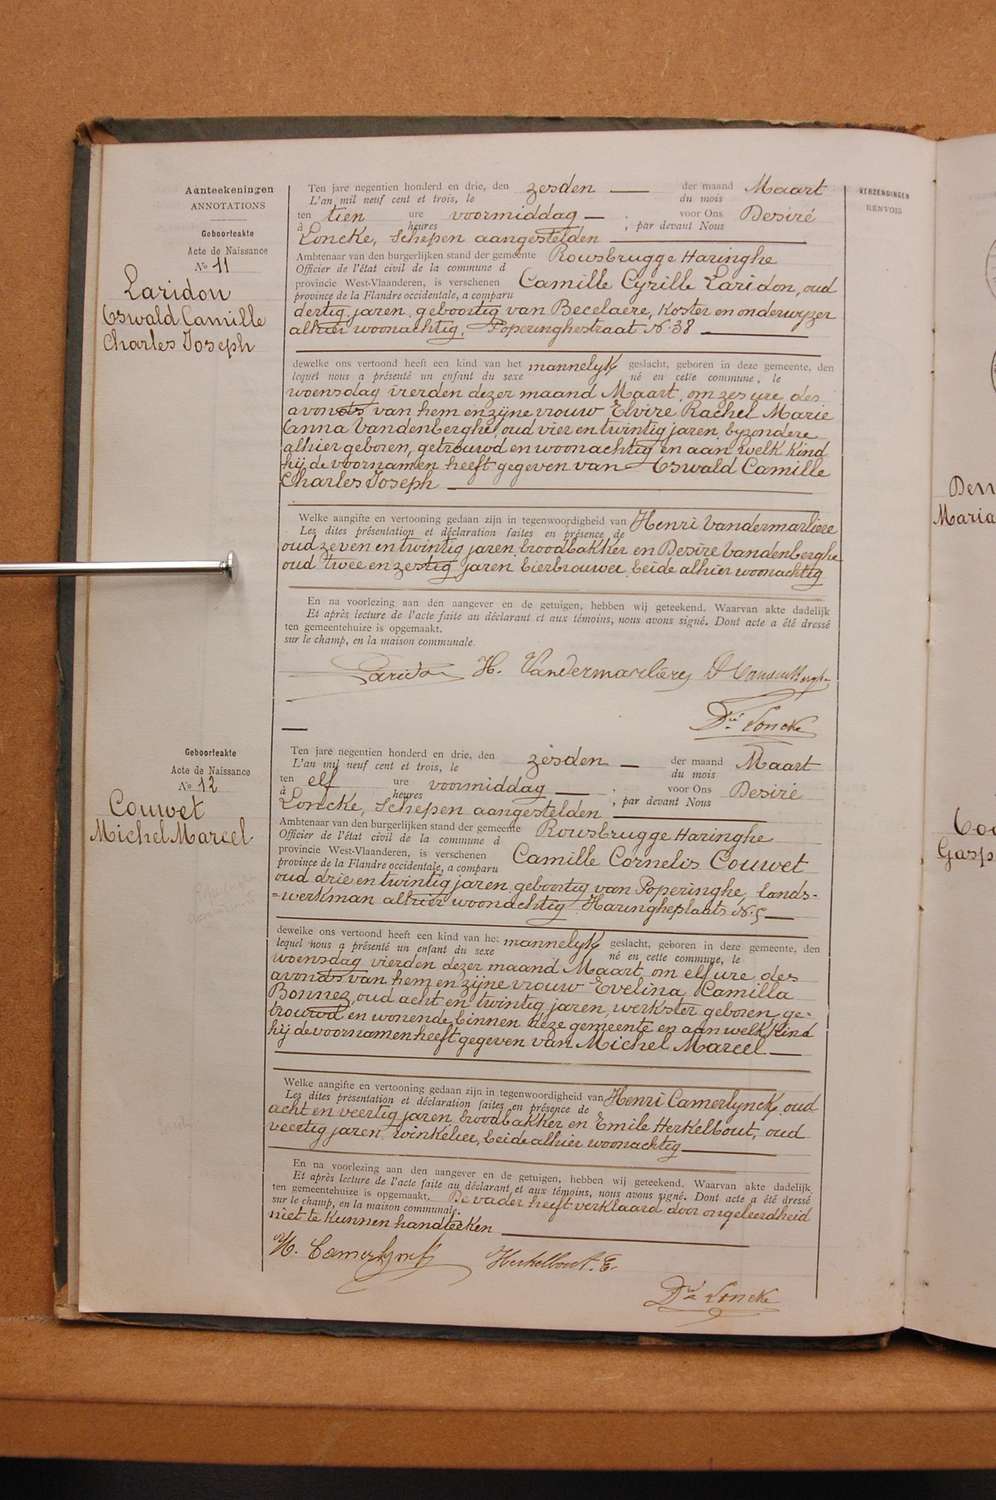 Aanteekeningen
ANNOTATIONS
Geboorteakte
Acte de Naissance
No 11
Laridon
Oswald Camille
Charles Joseph
Ten jare negentien honderd en drie, den zesden der maand Maart
L'an mil neuf cent et trois, le du mois
ten tien ure voormiddag ; voor Ons Desiré
à heures , par devant Nous
Loncke, Schepen aangestelden
Ambtenaar van den burgerlijken stand der gemeente Rousbrugge Haringhe
Officier de l'état civil de la commune d
provincie West-Vlaanderen, is verschenen Camille Cyrille Laridon, oud
province de la Flandre occidentale, a comparu
dertig jaren, geboortig van Becelaere, Koster en onderwijzer
alhier woonachtig, Poperinghestraat No 38
dewelke ons vertoond heeft een kind van het mannelyk geslacht, geboren in deze gemeente, den
lequel nous a présenté un enfant du sexe né en cette commune, le
woensdag vierden dezer maand Maart, om zes ure des
avonds van hem en zijne vrouw Elvire Rachel Marie
Anna Vandenberghe, oud vier en twintig jaren, byzondere
alhier geboren, getrouwd en woonachtig en aan welk kind
hij de voornamen heeft gegeven van Oswald Camille
Charles Joseph
Welke aangifte en vertooning gedaan zijn in tegenwoordigheid van Henri Vandermarliere
Les dites présentation et déclaration faites en présence de
oud zeven en twintig jaren, broodbakker en Desiré Vandenberghe
oud twee en zestig jaren bierbrouwer, beide alhier woonachtig
En na voorlezing aan den aangever en de getuigen, hebben wij geteekend. Waarvan akte dadelijk
Et après lecture de l'acte faite au déclarant et aux témoins, nous avons signé. Dont acte a été dressé
ten gemeentehuize is opgemaakt.
sur le champ, en la maison communale.
Laridon H. Vandermarliere D Vandenberghe
Dré Loncke
Geboorteakte
Acte de Naissance
No 12
Couwet
Michel Marcel
Ten jare negentien honderd en drie, den zesden der maand Maart
L'an mil neuf cent et trois, le du mois
ten elf ure voormiddag ; voor Ons Desiré
à heures , par devant Nous
Loncke, Schepen aangestelden
Ambtenaar van den burgerlijken stand der gemeente Rousbrugge Haringhe
Officier de l'état civil de la commune d
provincie West-Vlaanderen, is verschenen Camille Cornelis Couwet
province de la Flandre occidentale, a comparu
oud drie en twintig jaren geboortig van Poperinghe, lands-
=werkman alhier woonachtig Haringheplaats No 5
dewelke ons vertoond heeft een kind van het mannelyk geslacht, geboren in deze gemeente, den
lequel nous a présenté un enfant du sexe né en cette commune, le
woensdag vierden dezer maand Maart, om elf ure des
avonds van hem en zijne vrouw Evelina Camilla
Bonnez, oud acht en twintig jaren, werkster geboren, ge-
trouwd en wonende binnen deze gemeente en aan welk kind
hij de voornamen heeft gegeven van Michel Marcel
Welke aangifte en vertooning gedaan zijn in tegenwoordigheid van Henri Camerlynck, oud
Les dites présentation et déclaration faites en présence de
acht en veertig jaren, broodbakker en Emile Herkelbout, oud
veertig jaren, winkelier, beide alhier woonachtig
En na voorlezing aan den aangever en de getuigen, hebben wij geteekend. Waarvan akte dadelijk
Et après lecture de l'acte faite au déclarant et aux témoins, nous avons signé. Dont acte a été dressé
ten gemeentehuize is opgemaakt. De vader heeft verklaard door ongeleerdheid
sur le champ, en la maison communale.
niet te kunnen handteeken
H. Camerlynck Herkelbout. E.
Dré Loncke
VERZENDINGEN
RENVOIS
Maria
Gasp